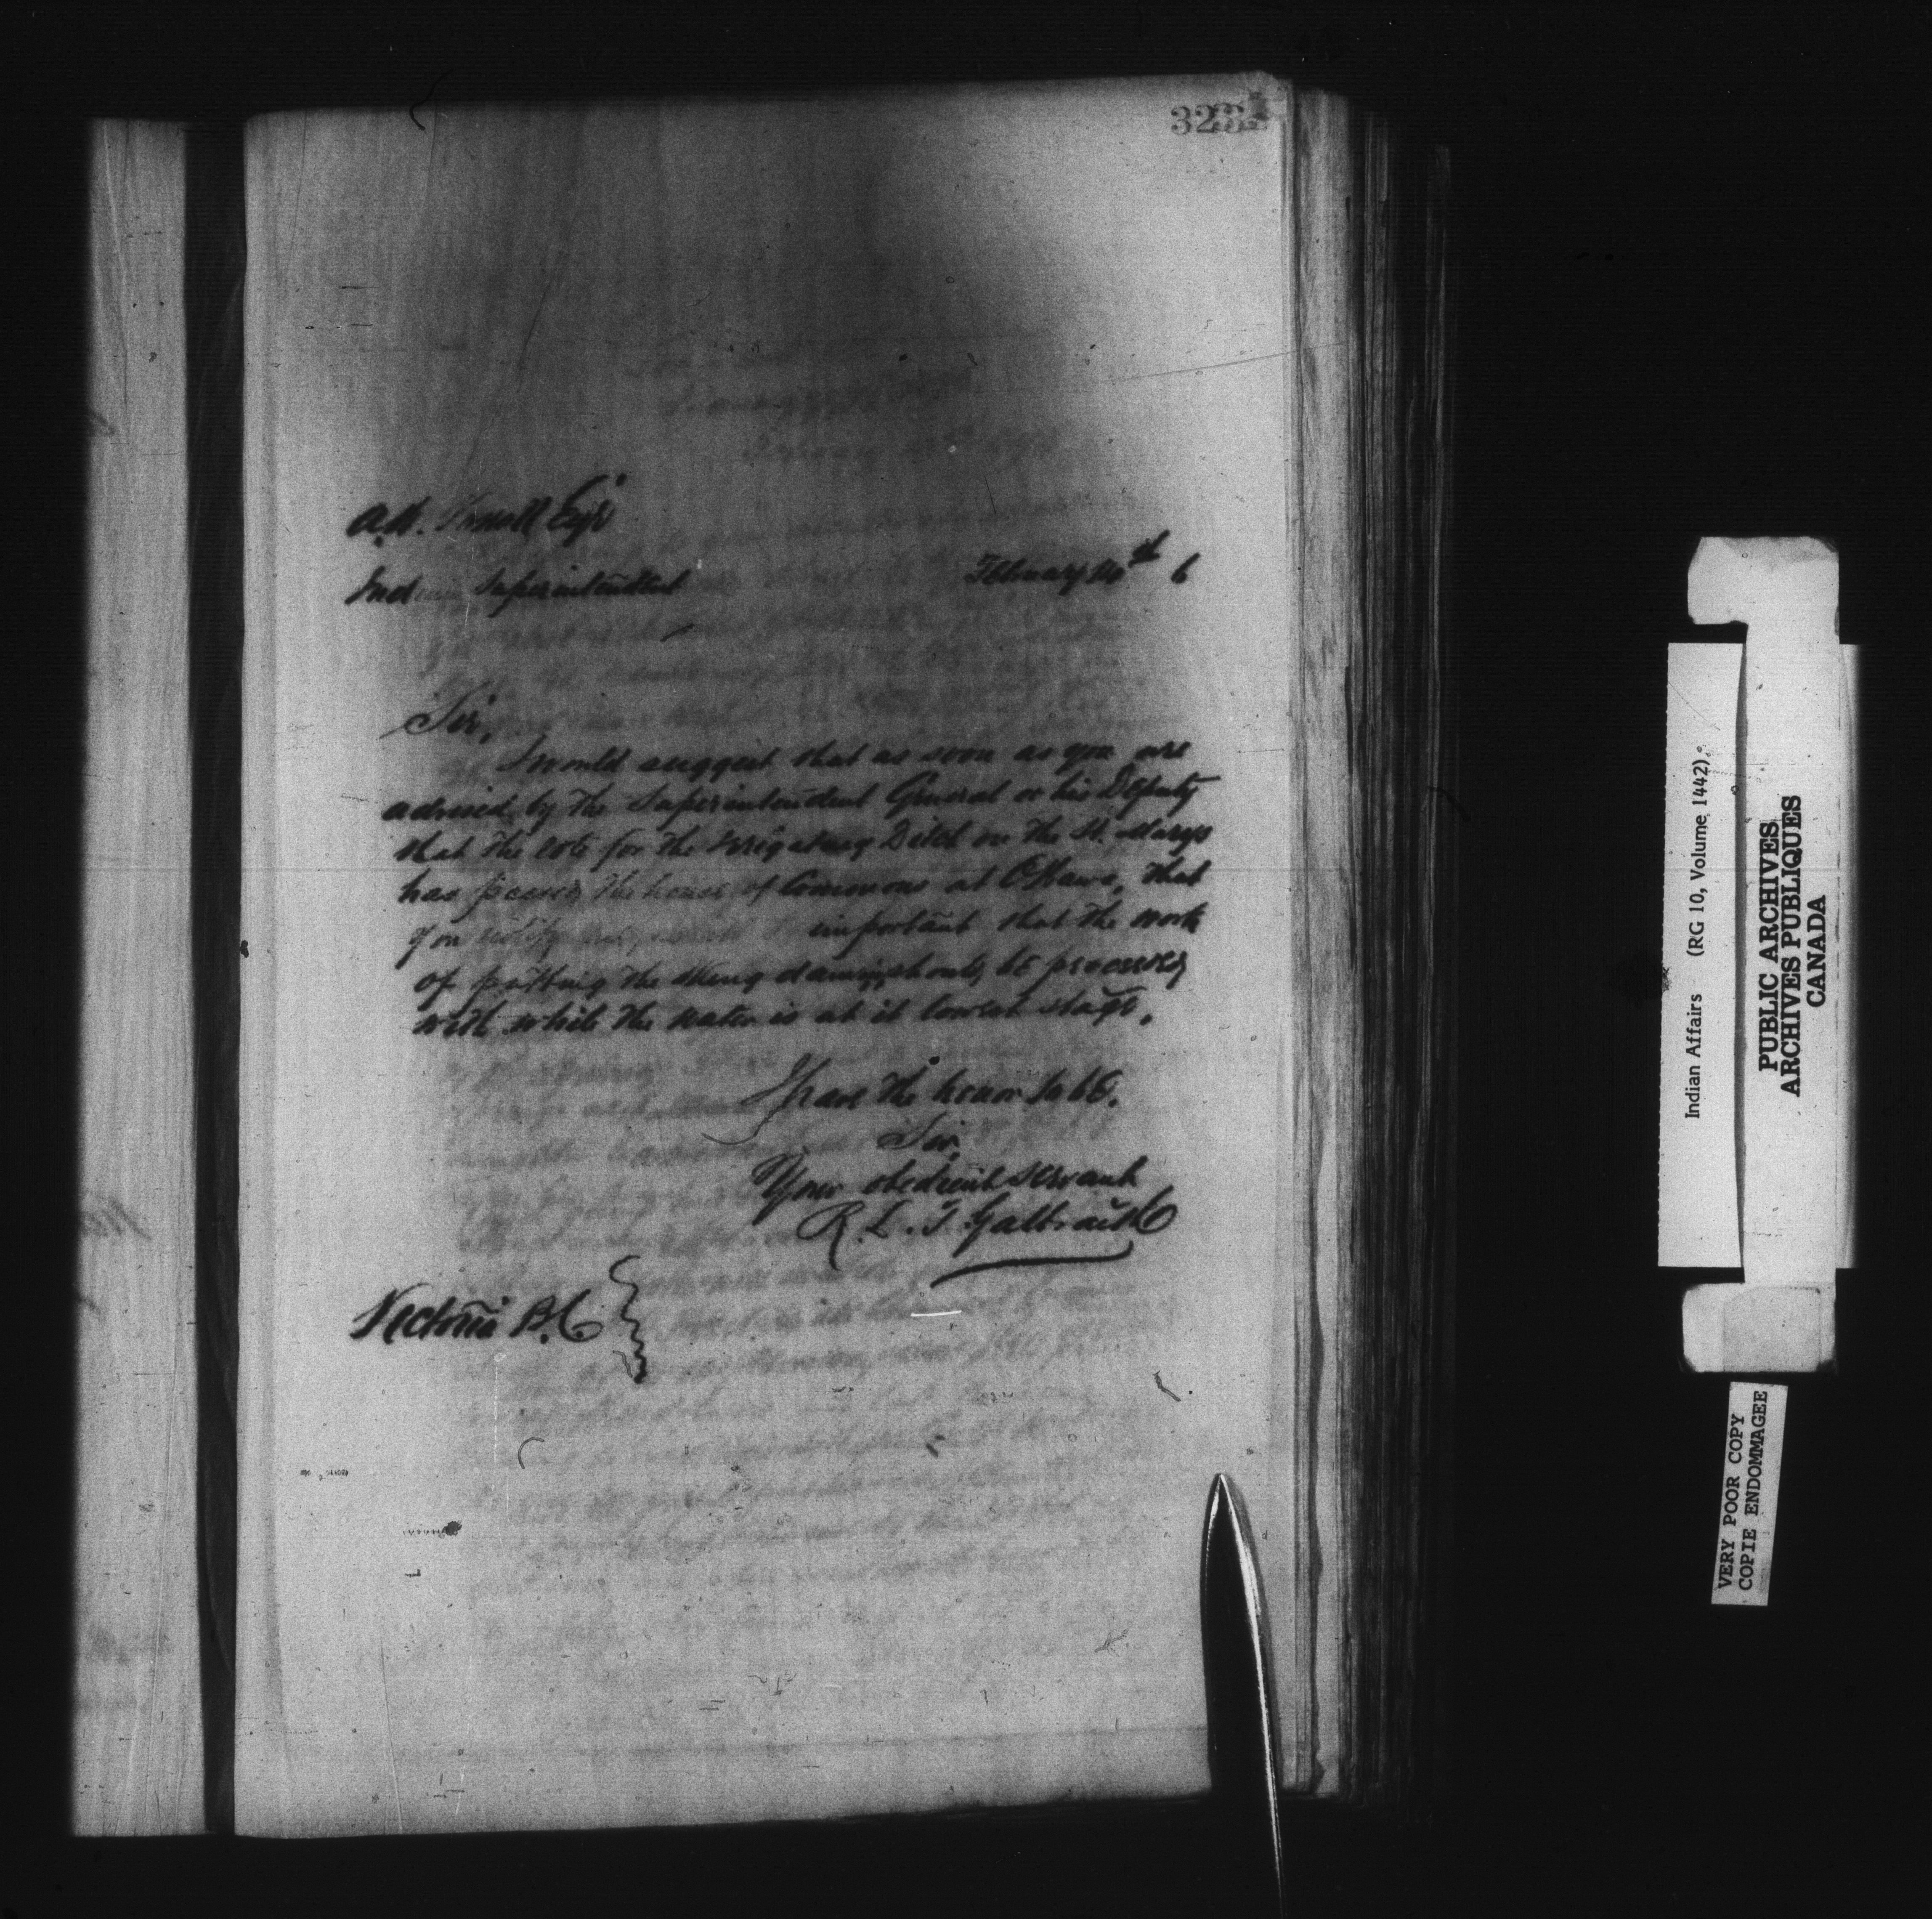 A.W. Vowell Esqr
Indian Superintendent
February 10th 6
Sir,
I would suggest that as soon as you are
advised by the Superintendent General or his Deputy
that the vote for the Irrigating Ditch on the St. Marys
has passed the house of Commons at Ottawa, that
you important that the work
of putting the wing dam should be proceeded
with while the water is at it lowest stage.
I have the honor to be.
Sir,
Your obedient servant
R. L. T. Galbraith
Victoria B.C
Indian Affairs (RG 10, Volume 1442)
PUBLIC ARCHIVES
ARCHIVES PUBLIQUES
CANADA
VERY POOR COPY
COPIE ENDOMMAGEE